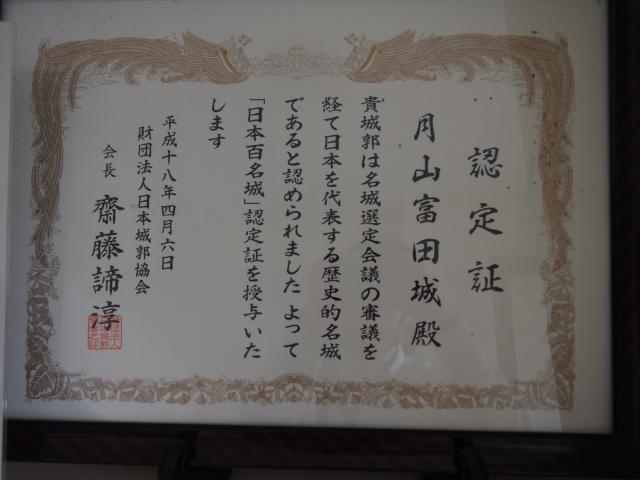 認定証
月山富田城殿
貴城郭は名城選定会議の審議を
経て日本を代表する歴史的名城
であると認められました よって
「日本百名城」認定証を授与いた
します
平成十八年四月六日
財団法人日本城郭協会
会長 齋藤諦淳